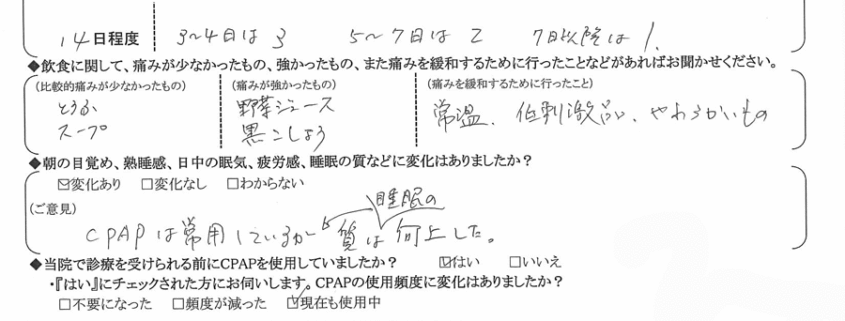 14日程度 3〜4日は3 5〜7日は2 7日以降は1.
◆飲食に関して、痛みが少なかったもの、強かったもの、また痛みを緩和するために行ったことなどがあればお聞かせください。
(比較的痛みが少なかったもの) (痛みが強かったもの) (痛みを緩和するために行ったこと)
とうふ 野菜ジュース 常温、低刺激品、やわらかいもの
スープ 黒こしょう
◆朝の目覚め、熟睡感、日中の眠気、疲労感、睡眠の質などに変化はありましたか？
☑変化あり □変化なし □わからない
(ご意見) 睡眠の
CPAPは常用しているが 質は向上した。
◆当院で診療を受けられる前にCPAPを使用していましたか？ ☑はい □いいえ
・『はい』にチェックされた方にお伺いします。CPAPの使用頻度に変化はありましたか？
□不要になった □頻度が減った ☑現在も使用中